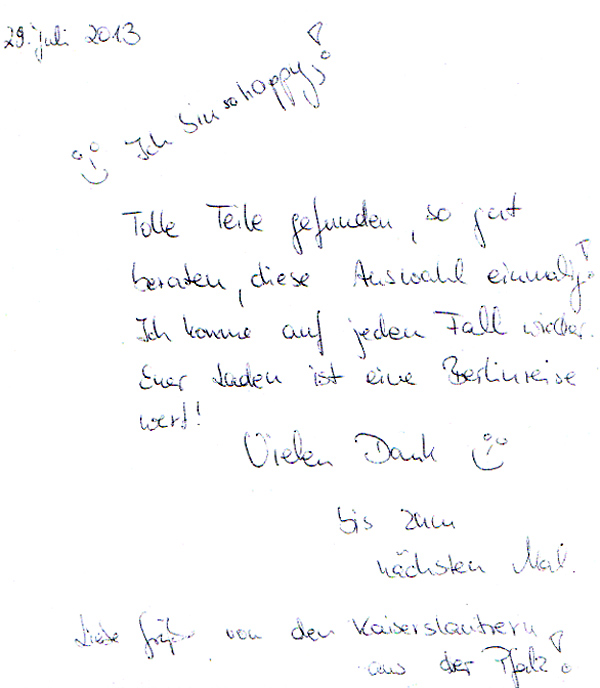 29. Juli 2013
Ich bin so happy!
Tolle Teile gefunden, so gut
beraten, diese Auswahl einmalig!
Ich komme auf jeden Fall wieder.
Euer Laden ist eine Berlinreise
wert!
Vielen Dank
bis zum
nächsten Mal.
Liebe Grüße von den Kaiserslautrern
aus der Pfalz!